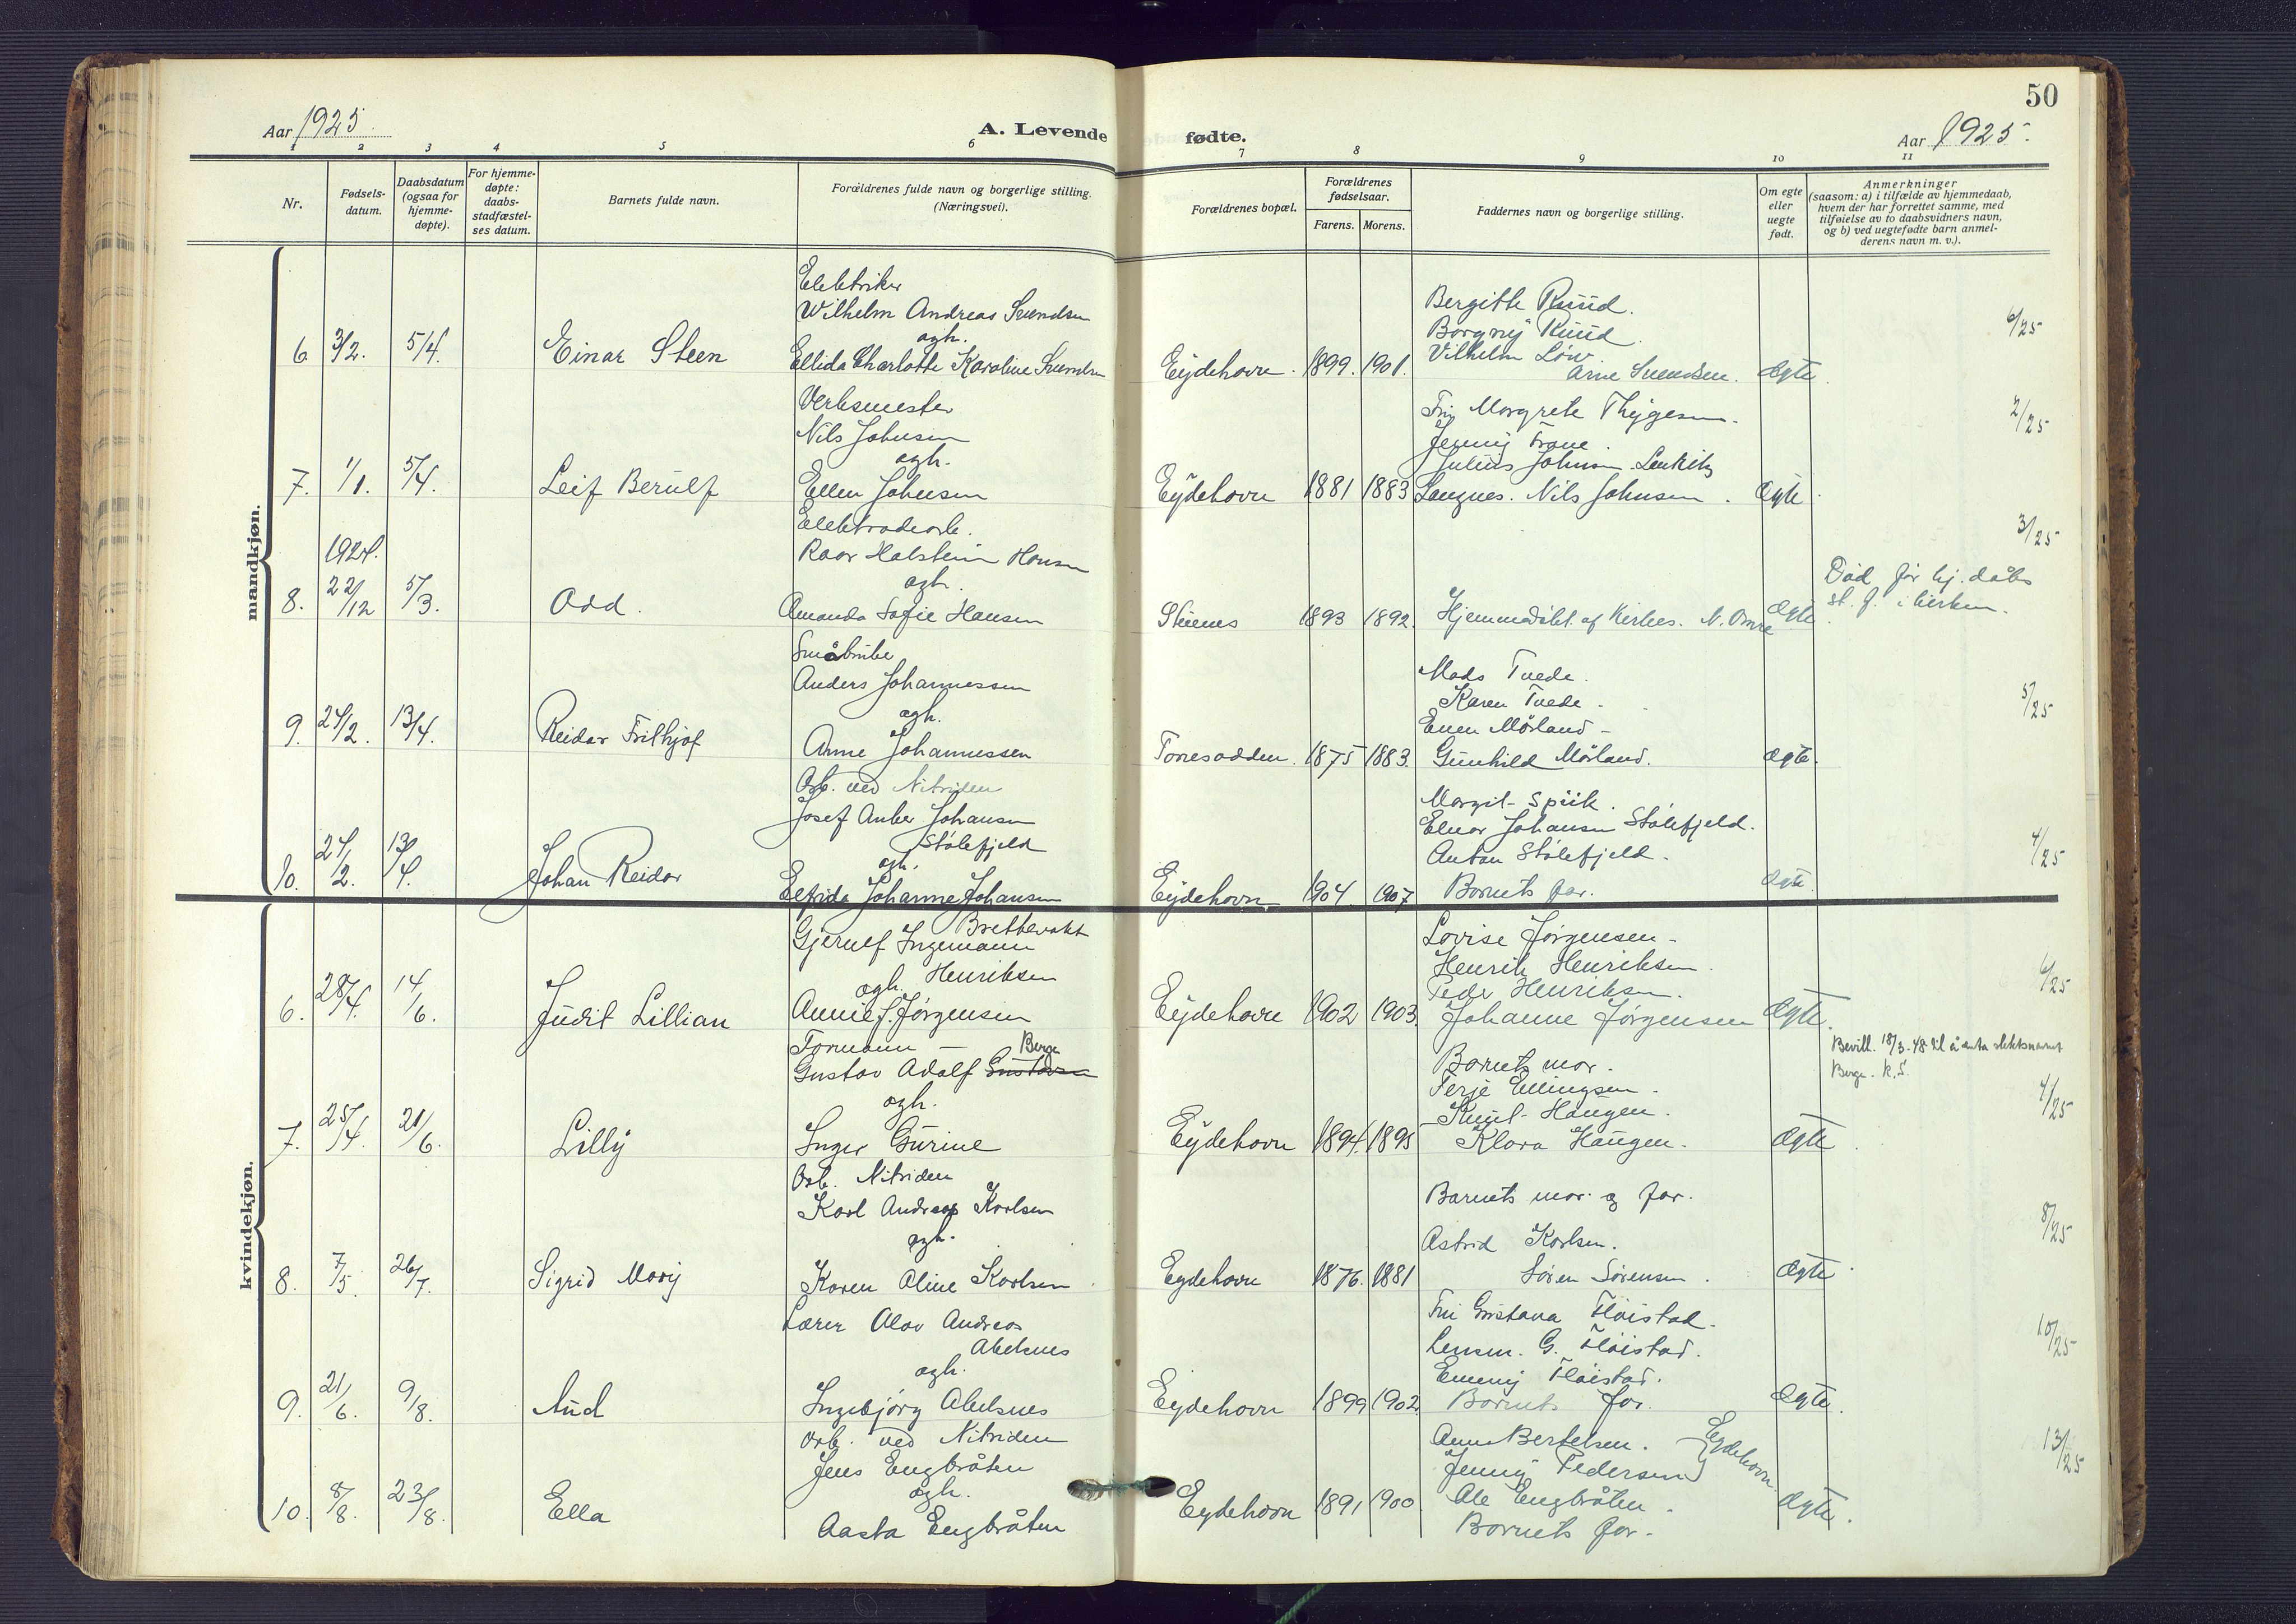 50
Aar 1925.
A. Levende
fødte.
Aar 1925.
1 2 3 4 5 6 7 8 9 10 11
Nr.
Fødsels-
datum.
Daabsdatum
(ogsaa for
hjemme-
døpte).
For hjemme-
døpte:
daabs-
stadfæstel-
ses datum.
Barnets fulde navn.
Forældrenes fulde navn og borgerlige stilling.
(Næringsvei).
Forældrenes bopæl.
Forældrenes
fødselsaar.
Farens. Morens.
Faddernes navn og borgerlige stilling.
Om egte
eller
uegte
født.
Anmerkninger
(saasom: a) i tilfælde av hjemmedaab,
hvem der har forrettet samme, med
tilføielse av to daabsvidners navn,
og b) ved uegtefødte barn anmel-
derens navn m. v.).
mandkjøn.
Elektriker
Wilhelm Andreas Svendsen
ogh.
6 3/2. 5/4. Einar Steen Ellida Charlotte Karoline Svendsen
Eydehavn. 1899. 1901.
Bergitte Ruud.
Borgny Ruud.
Vilhelm Löw.
Arne Svendsen. Egte.
6/25
Verksmester
Nils Johnsen
ogh.
7. 1/1. 5/4. Leif Berulf Ellen Johnsen
Eydehavn 1881 1883
Fru Margrete Thygesen.
Jenny Trane.
Julius Johnsen
Langnes. Nils Johnsen. Egte.
2/25
Elektrodearb.
Roar Halstein Hansen
ogh.
1924.
8. 22/12 5/3. Odd. Amanda Sofie Hansen
1893 1892. Hjemmedöbt af Kirkes. Egte.
Död för hj. dåbs
st. f. i kirken.
3/25
Småbruker
Anders Johannessen
ogh.
9. 24/2. 13/4. Reidar Frithjof Anne Johannessen
Torresodden. 1875 1883.
Mads Tvede.
Karen Tvede.
Even Mörland.
Gunhild Mörland. Egte.
5/25
Arb. ved Nitriden
Josef Anker Johansen
Stölefjeld
ogh.
10. 24/2. 13/4. Johan Reidar Elfrida Johanne Johansen
Eydehavn 1904 1907
Margit Spiik.
Elnar Johansen Stölefjeld.
Anton Stölefjeld.
Barnets far. Egte.
4/25
kvindekjøn.
Brettevakt
Gjerulf Ingemann
Henriksen
ogh.
6. 28/4. 14/6. Judit Lillian Annie J. Jörgensen
Eydehavn 1902 1903.
Lovise Jörgensen.
Henrik Henriksen.
Peder Henriksen.
Johanne Jörgensen Egte.
6/25
Formann
Berge
Gustav Adolf Gustavsen
ogh.
7. 25/4. 21/6. Lilly Inger Gurine
Eydehavn 1894. 1895
Barnets mor.
Terje Ellingsen.
Knut Haugen.
Klara Haugen. Egte.
Bevill. 18/3-48 til å anta slektsnavnet
Berge. K.S.
4/25
Arb. Nitriden
Karl Andreas Karlsen
ogh.
8. 7/5. 26/7. Sigrid Mary Karen Aline Karlsen
Eydehavn 1876. 1881
Barnets mor og far.
Astrid Karlsen.
Sören Sörensen. Egte.
8/25
Lærer Olav Andreas
Abelsnes
ogh.
9. 21/6. 9/8. Aud Ingebjörg Abelsnes
Eydehavn 1899 1902.
Fru Gustava Flöistad.
Lensm. G. Flöistad.
Emmy Flöistad.
Barnets far. Egte.
10/25
Arb. ved Nitriden
Jens Engbråten
ogh.
10. 8/8. 23/8. Ella Aasta Engbråten
Eydehavn 1891 1900.
Anna Bertelsen.
Jenny Pedersen
Eydehavn
Ole Engbråten.
Barnets far. Egte.
13/25